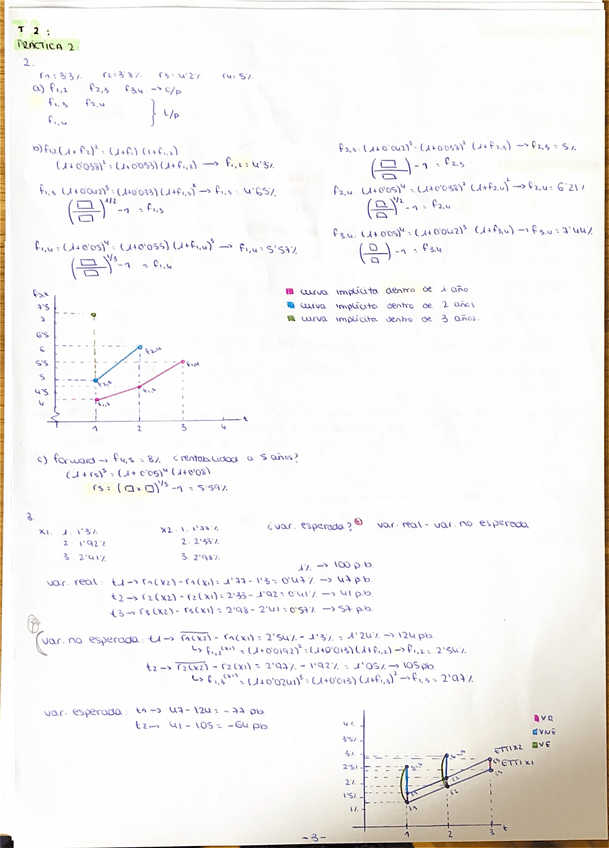 T 2:
PRÁCTICA 2
2.
r1=3'3% r2=3'3% r3=4'2% r4=5%
a) f1,2 f2,3 f3,4 → c/p
f1,3 f2,4
f1,4
} L/p
b) f1,2 (1+r2)² = (1+r1) (1+f1,2)
(1+0'038)² = (1+0'033) (1+f1,2) → f1,2 = 4'3%
f1,3 (1+0'042)³ = (1+0'033) (1+f1,3)² → f1,3 = 4'65%
( )^1/2 - 1 = f1,3
f1,4 = (1+0'05)⁴ = (1+0'033) (1+f1,4)³ → f1,4 = 5'57%
( )^1/3 - 1 = f1,4
f2,3 = (1+0'042)³ = (1+0'038)² (1+f2,3) → f2,3 = 5%
( ) - 1 = f2,3
f2,4 = (1+0'05)⁴ = (1+0'038)² (1+f2,4)² → f2,4 = 6'21%
( )^1/2 - 1 = f2,4
f3,4 = (1+0'05)⁴ = (1+0'042)³ (1+f3,4) → f3,4 = 7'44%
( ) - 1 = f3,4
curva implícita dentro de 1 año
curva implícita dentro de 2 años
curva implícita dentro de 3 años.
7'5
7
6'5
6
5'5
5
4'5
4
f2,4
f2,3
f1,4
f1,3
f1,2
1 2 3 4 t
c) forward → f4,5 = 8% ¿rentabilidad a 5 años?
(1+r5)⁵ = (1+0'05)⁴ (1+0'08)
r5 = ( · )^1/5 - 1 = 5'59%
3.
x1. 1. 1'3% x2. 1. 1'77% ¿var. esperada? var. real - var. no esperada
2. 1'92% 2. 2'33%
3. 2'41% 3. 2'98%
1% → 100 pb
var. real: t1 → r1(x2) - r1(x1) = 1'77 - 1'3 = 0'47% → 47 pb
t2 → r2(x2) - r2(x1) = 2'33 - 1'92 = 0'41% → 41 pb
t3 → r3(x2) - r3(x1) = 2'98 - 2'41 = 0'57% → 57 pb
var. no esperada: t1 → r1(x2) - r1(x1) = 2'54% - 1'3% = 1'24% → 124 pb
↳ f1,2(x1) = (1+0'0192)² = (1+0'013) (1+f1,2) → f1,2 = 2'54%
t2 → r2(x2) - r2(x1) = 2'97% - 1'92% = 1'05% → 105 pb
↳ f1,3(x1) = (1+0'0241)³ = (1+0'013) (1+f1,3)² → f1,3 = 2'97%
var. esperada: t1 → 47 - 124 = -77 pb
t2 → 41 - 105 = -64 pb
VR
VNE
VE
4%
3'5%
3%
2'5%
2%
1'5%
1%
ETTI X2
ETTI X1
1 2 3 t
-3-